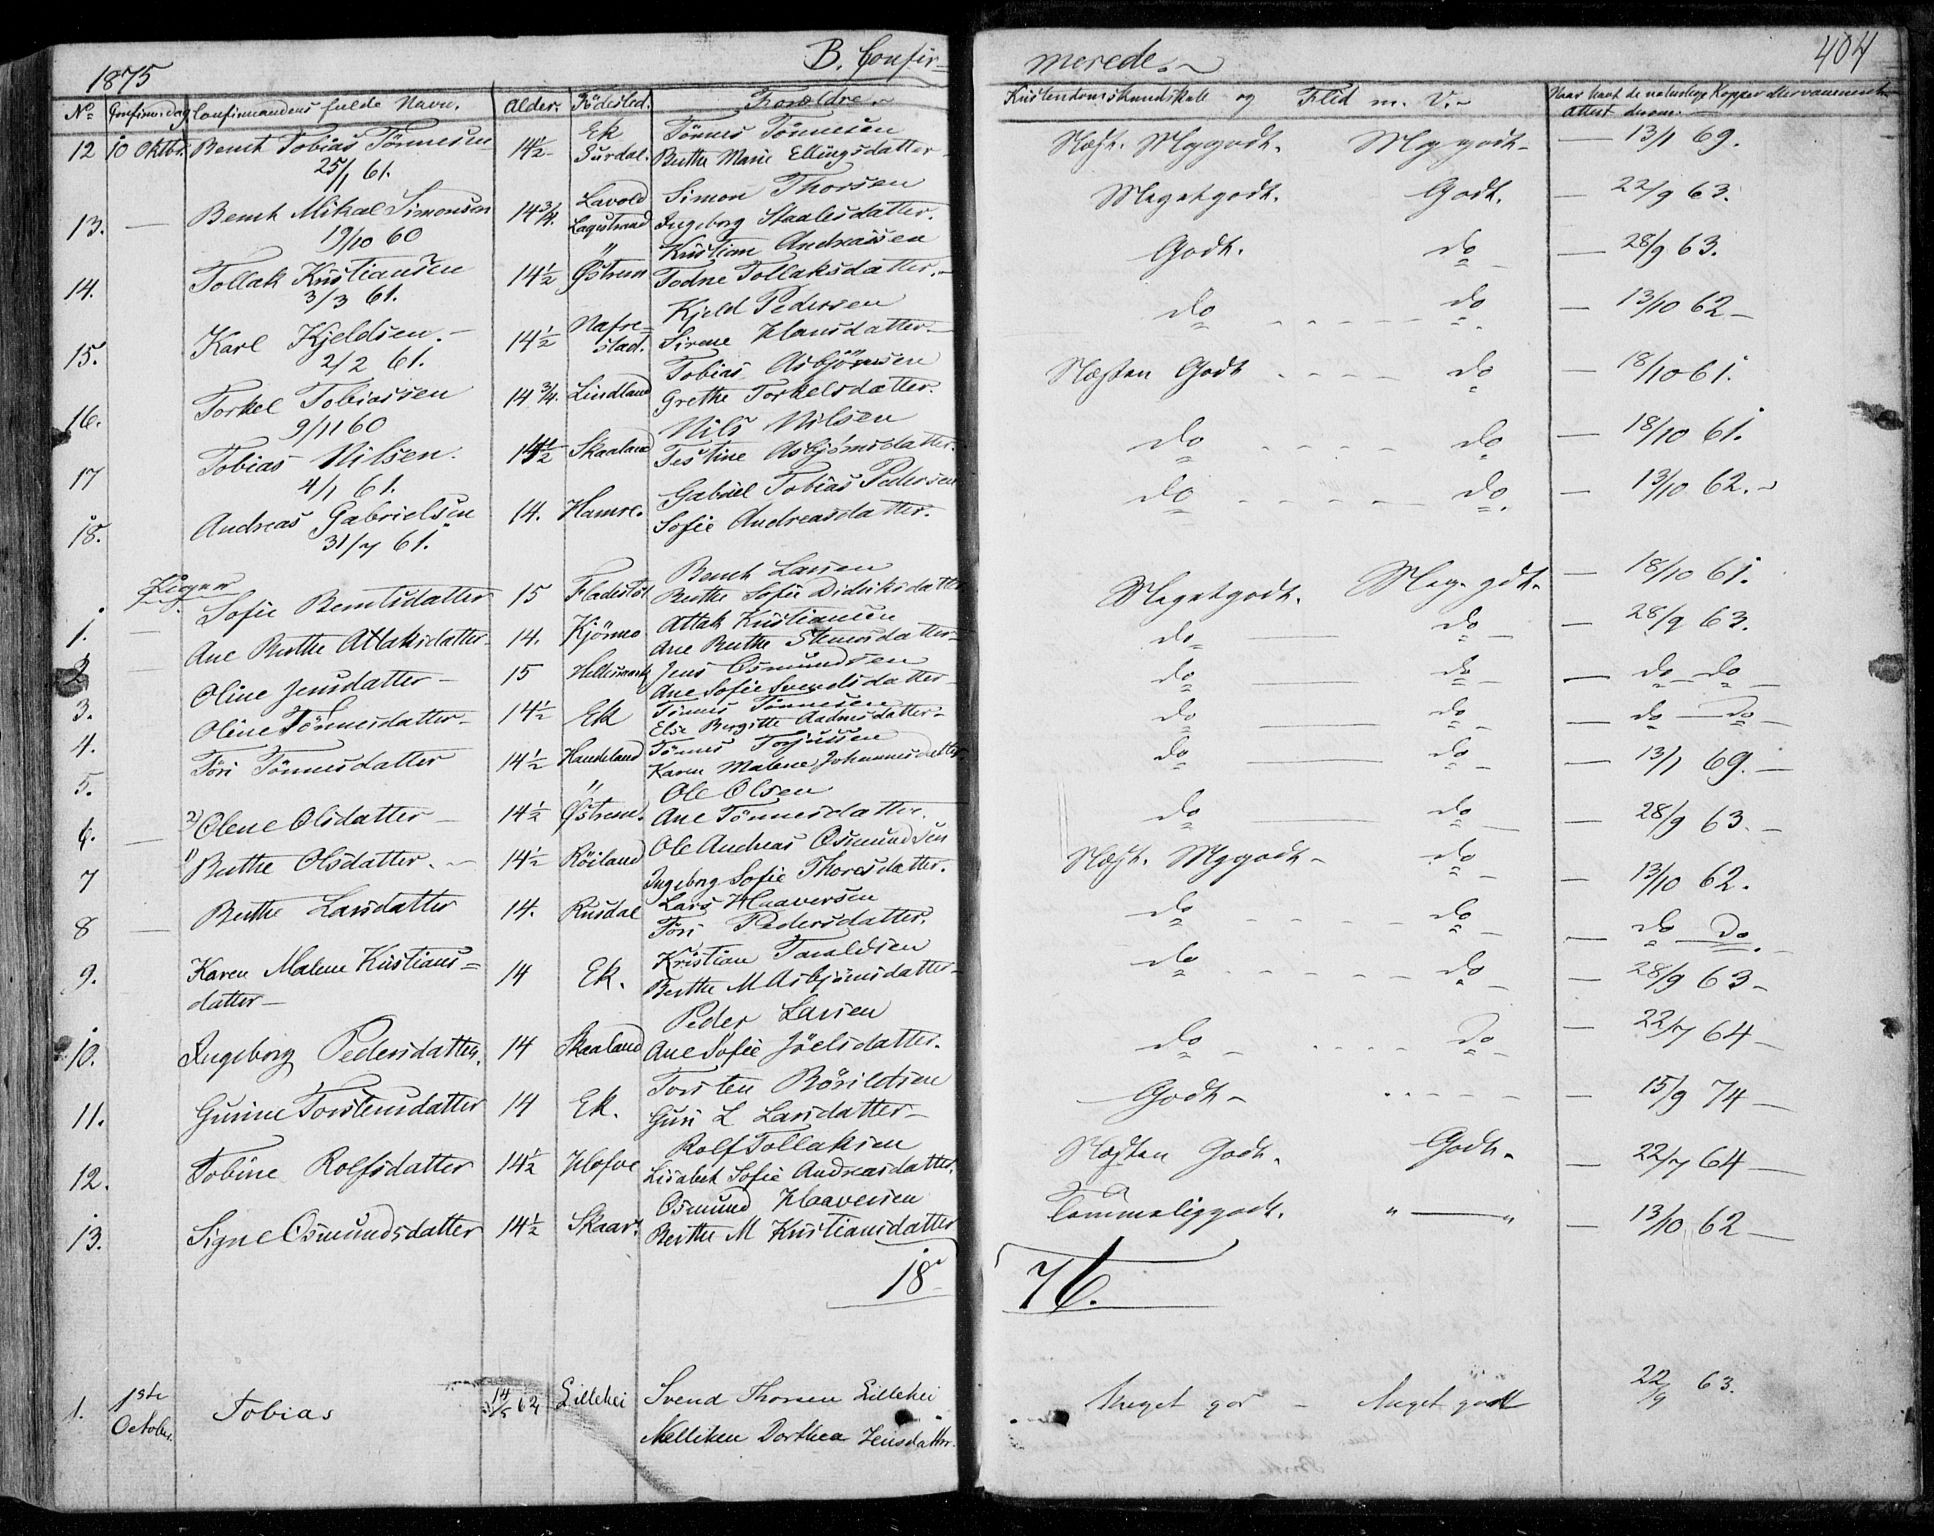 1875 B. Confirmerede. 404
No Confirm.dag Confirmandens fulde Navn. Alder. Födested. Forældre. Kristendomskundskab og Flid m. V. Naar havt de naturlige Kopper eller vaccineret Attest derom
12 10 Oktbr. Bernt Tobias Tönnesen 14½ Ek Surdal. Tönnes Tönnesen Næst. Meggodt. Meg godt. — 13/1 69.
25/1 61. Berthe Marie Ellingsdatter
13. — Bernt Mikal Simonsen 14¾. Lavold Lagestrand Simon Thorsen Megetgodt. Godt. — 22/9 63.
19/10 60 Ingeborg Staalesdatter.
14. Tollak Kristiansen 14½ Østrem Kristian Andreassen Godt. do — 28/9 63.
3/3 61. Todne Tollaksdatter.
15. Karl Kjeldsen. 14½ Nafrestad. Kjeld Pedersen do do — 13/10 62
2/2 61. Sirene Hansdatter
16. Torkel Tobiassen 14¾. Lindland Tobias Asbjörnsen Næsten Godt do — 18/10 61.
9/11 60 Grethe Torkelsdatter.
17 Tobias Nilsen. 14½ Skaaland Nils Nilsen do do — 18/10 61.
4/1 61. Testine Asbjörnsdatter.
18. Andreas Gabrielsen 14. Hamre. Gabriel Tobias Pedersen do do. — 13/10 62.
31/7 61. Sofie Andreasdatter.
Piger
1. — Sofie Berntsdatter 15 Fladestöl Bernt Larsen Megetgodt. Meg. gdt. — 18/10 61.
Berthe Sofie Didriksdatter
2 — Ane Berthe Atlaksdatter 14. Kjörmo Atlak Kristiansen do do — 28/9 63.
Ane Berthe
3. Oline Jensdatter 15 Jens Osmundsen do do — do do
Ane Sofie Svendsdatter
4. Oline Tönnesdatter 14½ Ek Tönnes Tönnesen do do — do do
Else Bergitte Aadnesdatter
5. Töri Tönnesdatter 14½ Haudeland Tönnes Torjussen do do — 13/1 69.
Karen Malene Johannesdatter
6. — 2) Olene Olsdatter 14½ Østrem. Ole Olsen do do — 28/9 63.
Ane Tönnesdatter.
7 1) Berthe Olsdatter. 14½ Röiland Ole Andreas Osmundsen Næst. Mggodt do — 13/10 62.
Ingeborg Sofie Thoresdatter.
8 — Berthe Larsdatter 14. Rusdal Lars Haaversen do do — do do.
Töri Pedersdatter.
9. Karen Malene Kristiansdatter 14 Ek. Kristian Taraldsen do do — 28/9 63
Berthe M Asbjörnsdatter
10. Ingeborg Pedersdatter. 14 Skaaland Peder Larsen do do — 22/7 64
Ane Sofie Jöelsdatter.
11. Gunine Torstensdatter 14 Ek. Torsten Börildsen Godt — 15/9 74
Guri L Larsdatter
12. Tobine Rolfsdatter 14½ Hofve Rolf Tollaksen Næsten Godt. Godt. — 22/7 64
Lisabet Sofie Andreasdatter.
13. Signe Osmundsdatter 14½ Skaar. Osmund Haaversen Temmeliggodt. " — " — 13/10 62
Berthe M Kristiansdatter
1876.
1. 1ste October. Tobias 14/5 62 Lillehei Svend Thorsen Lillehei Meget god — Meget godt 22/9 63.
Melliken Dorthea Jensdatter.